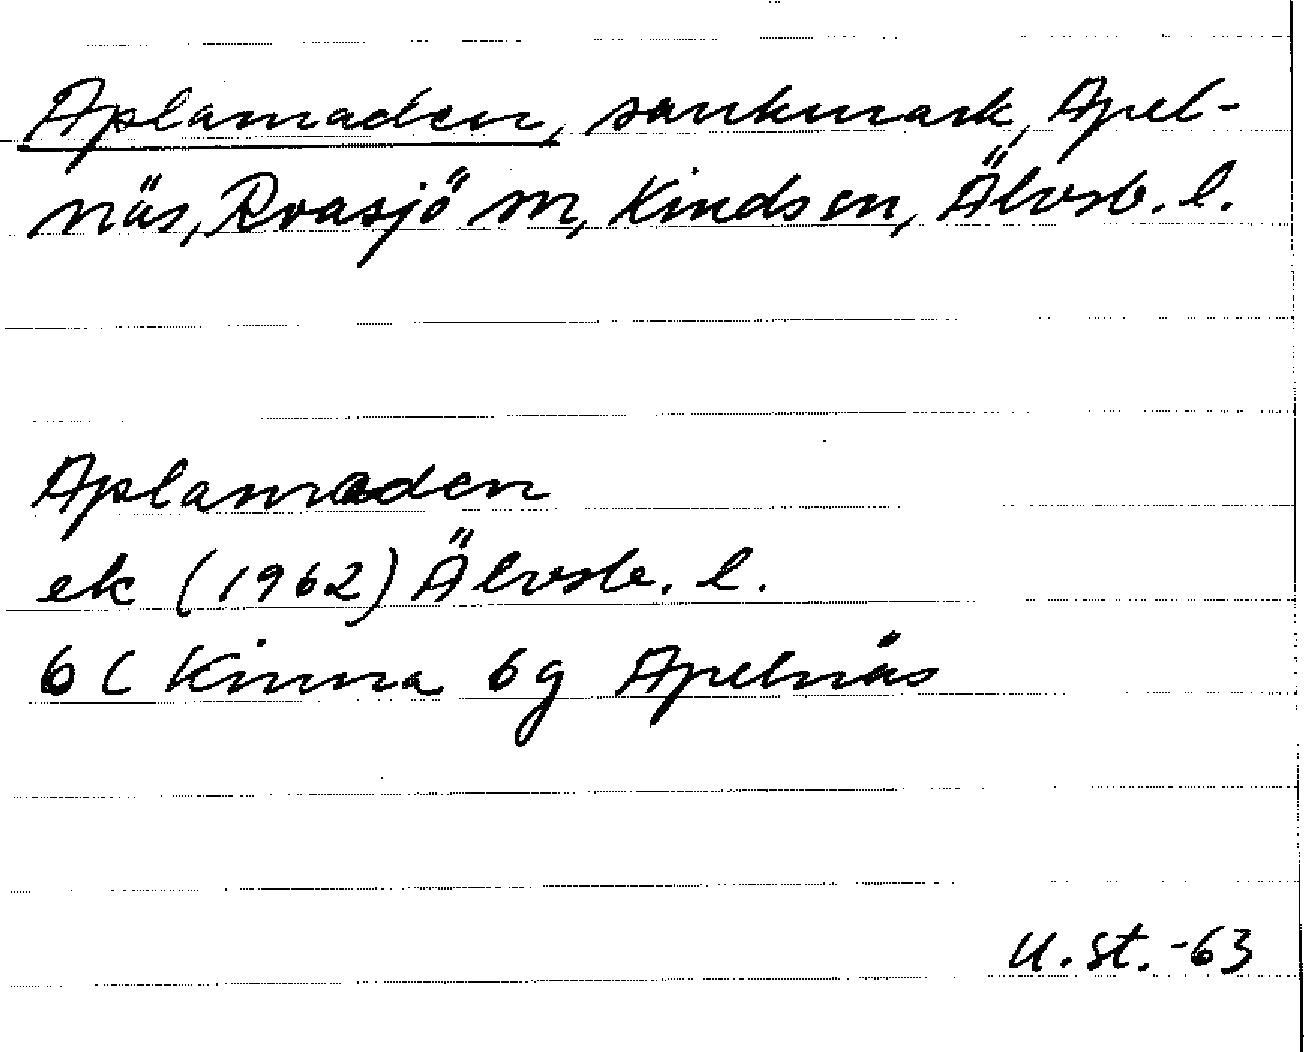 Aplamaden, sankmark, Apel-
näs, Roasjö sn, Kinds en, Älvsb. l.
Aplamaden
ek (1962) Älvsb. l.
6 C Kinna 6g Apelnäs
U. St. -63